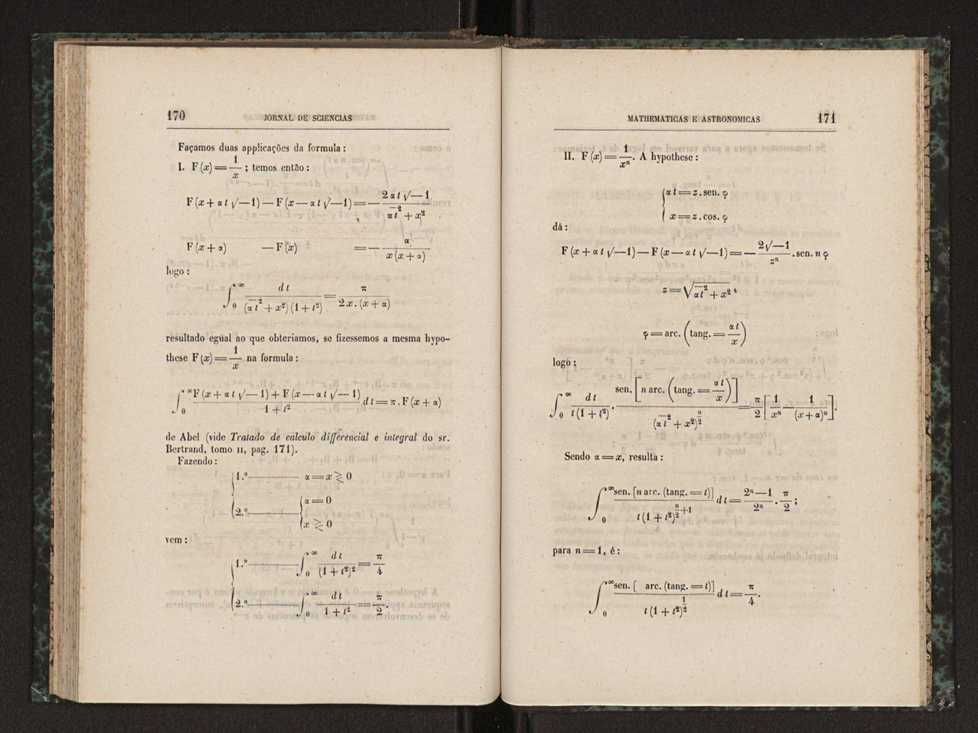 170 JORNAL DE SCIENCIAS
Façamos duas applicações da formula :
I. F (x) = 1/x ; temos então :
F (x + α t √—1) — F (x — α t √—1) = — 2 α t √—1 / (α t² + x²)
F (x + α) — F (x) = — α / x (x + α)
logo :
∫₀^∞ d t / (α t² + x²) (1 + t²) = π / 2 x . (x + α)
resultado egual ao que obteriamos, se fizessemos a mesma hypo-
these F (x) = 1/x na formula :
∫₀^∞ F (x + α t √—1) + F (x — α t √—1) / 1 + t² d t = π . F (x + α)
de Abel (vide Tratado de calculo differencial e integral do sr.
Bertrand, tomo II, pag. 171).
Fazendo :
1.º α = x ≷ 0
2.º { α = 0
x ≷ 0
vem :
1.º ∫₀^∞ d t / (1 + t²)² = π/4
2.º ∫₀^∞ d t / 1 + t² = π/2.
MATHEMATICAS E ASTRONOMICAS 171
II. F (x) = 1/xⁿ. A hypothese :
{ α t = z . sen. φ
x = z . cos. φ
dá :
F (x + α t √—1) — F (x — α t √—1) = — 2√—1 / zⁿ . sen. n φ
z = √(α t² + x²)
φ = arc. (tang. = α t / x)
logo :
∫₀^∞ d t / t (1 + t²) . sen. [n arc. (tang. = α t / x)] / (α t² + x²)^(n/2) = π/2 [1/xⁿ — 1/(x + α)ⁿ].
Sendo α = x, resulta :
∫₀^∞ sen. [n arc. (tang. = t)] / t (1 + t²)^(n/2 + 1) d t = 2ⁿ — 1 / 2ⁿ . π/2 ;
para n = 1, é :
∫₀^∞ sen. [ arc. (tang. = t)] / t (1 + t²)^(1/2) d t = π/4.